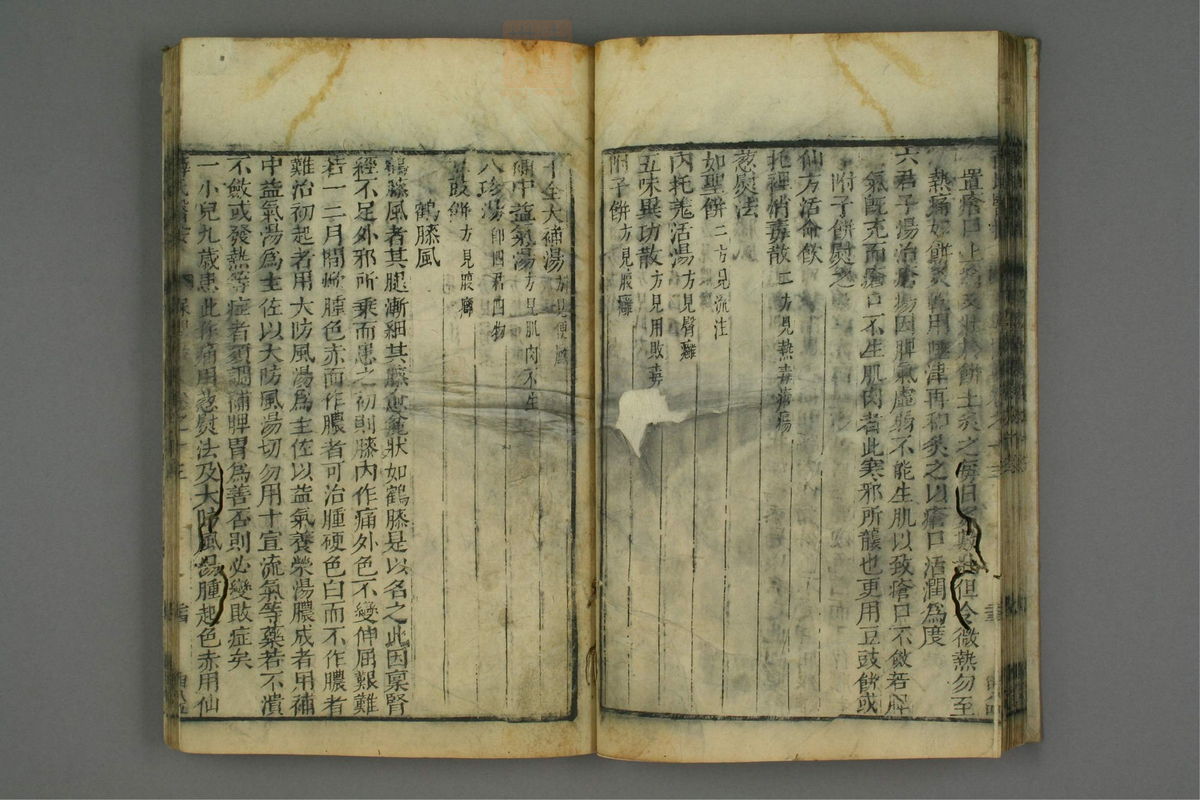 置瘡口上將艾壯於餅上灸之每日灸數壯但令微熱勿至
熱痛如餅乾用唾津再和灸之以瘡口活潤為度
六君子湯治瘡瘍因脾氣虛弱不能生肌以致瘡口不斂若脾
氣既充而瘡口不生肌肉者此寒邪所襲也更用豆豉餅或
附子餅熨之
仙方活命飲
托裡消毒散二方見熱毒瘡瘍
葱熨法
如聖餅二方見流注
內托羌活湯方見臂癰
五味異功散方見用敗毒
附子餅方見腹癰
十全大補湯方見便癰
補中益氣湯方見肌肉不生
八珍湯即四君四物
豆豉餅方見腹癰
鶴膝風
鶴膝風者其腿漸細其膝愈麄狀如鶴膝是以名之此因稟腎
經不足外邪所乘而患之初則膝內作痛外色不變伸屈艱難
若一二月間焮腫色赤而作膿者可治腫硬色白而不作膿者
難治初起者用大防風湯為主佐以益氣養榮湯膿成者用補
中益氣湯為主佐以大防風湯切勿用十宣流氣等藥若不潰
不斂或發熱等症者須調補脾胃為善否則必變敗症矣
一小兒九歲患此作痛用葱熨法及大防風湯腫起色赤用仙